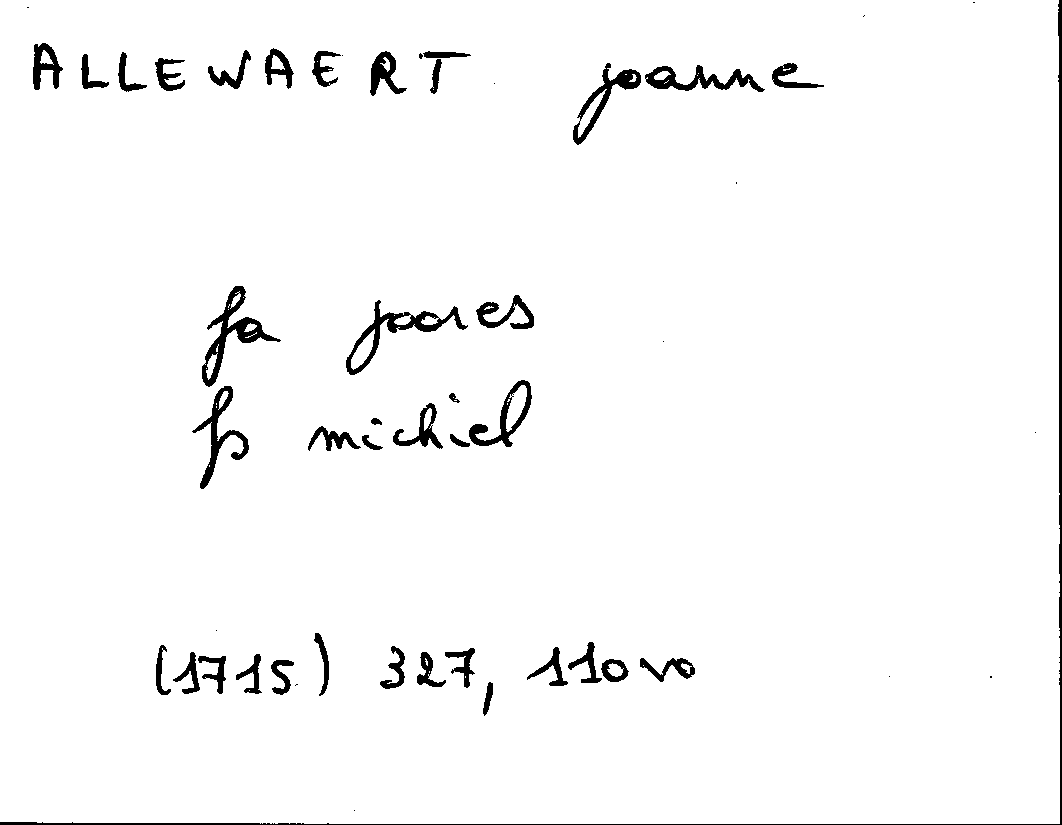 ALLEWAERT joanne
fa joores
fs michiel
(1715) 327, 110 vo